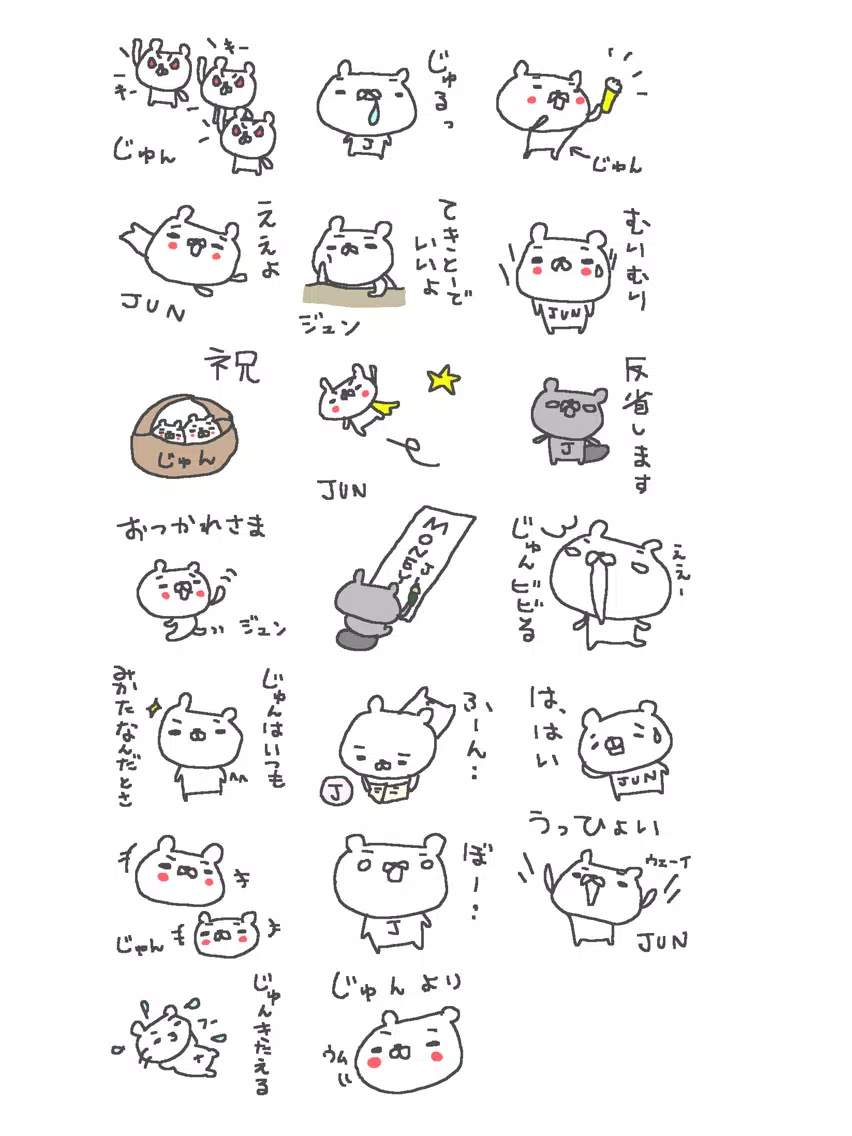 キー
キー
じゅん
じゅるっ
J
じゅん
ええよ
JUN
てきとーで
いいよ
ジュン
むりむり
JUN
祝
じゅん
JUN
反省します
J
おつかれさま
ジュン
MONEY
J
じゅんビビる
ええー
じゅんはいつも
みかたなんだとさ
ふーん‥
J
は、はい
JUN
じゅん
ぼー‥
J
うっひょい
ウェーイ
JUN
じゅんきたえる
フー
じゅんより
ウム